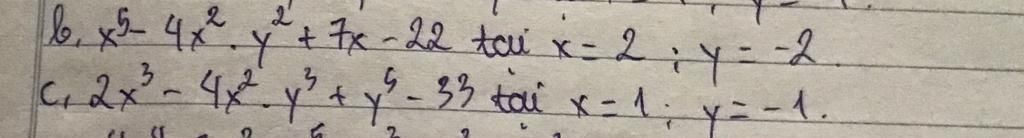 b, x⁵ - 4x² . y² + 7x - 22 tại x = 2 ; y = -2.
c, 2x³ - 4x² . y³ + y⁵ - 33 tại x = 1 ; y = -1.